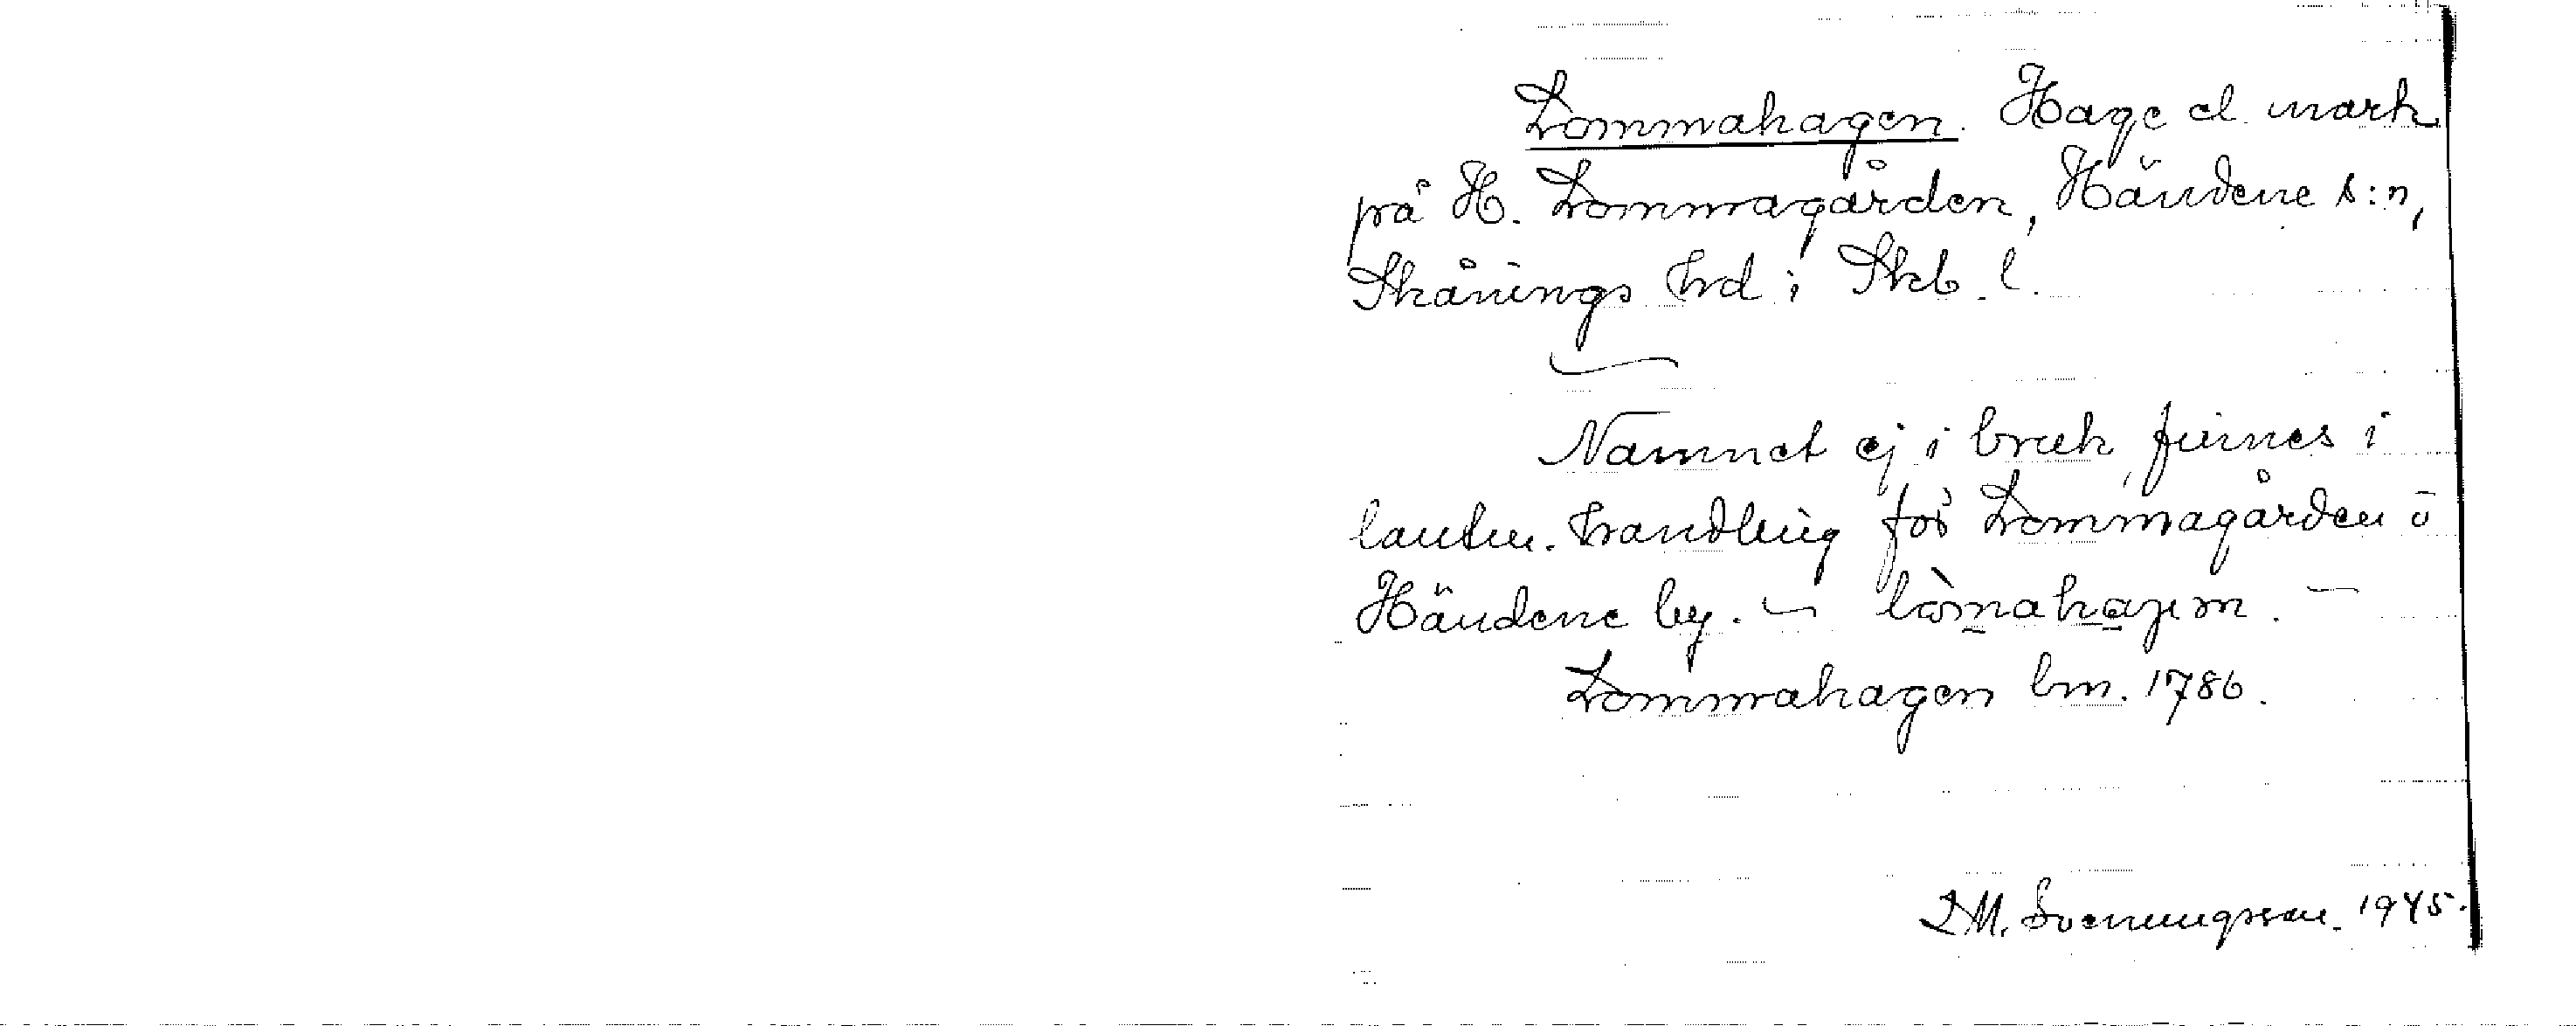 Lommahagen. Hage el. mark
på H. Lommagården, Händene s:n,
Skånings hrd i Skb. l.
Namnet ej i bruk, finnes i
lantm. handling för Lommagården i
Händene by. – lòmahaɡen. –
Lommahagen lm. 1786.
L M. Svenungsson. 1945.